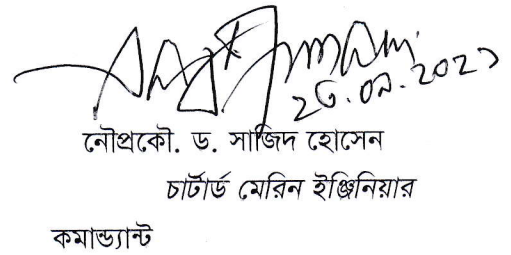 নৌপ্রকৌ. ড. সাজিদ হোসেন
চার্টার্ড মেরিন ইঞ্জিনিয়ার
কমান্ড্যান্ট